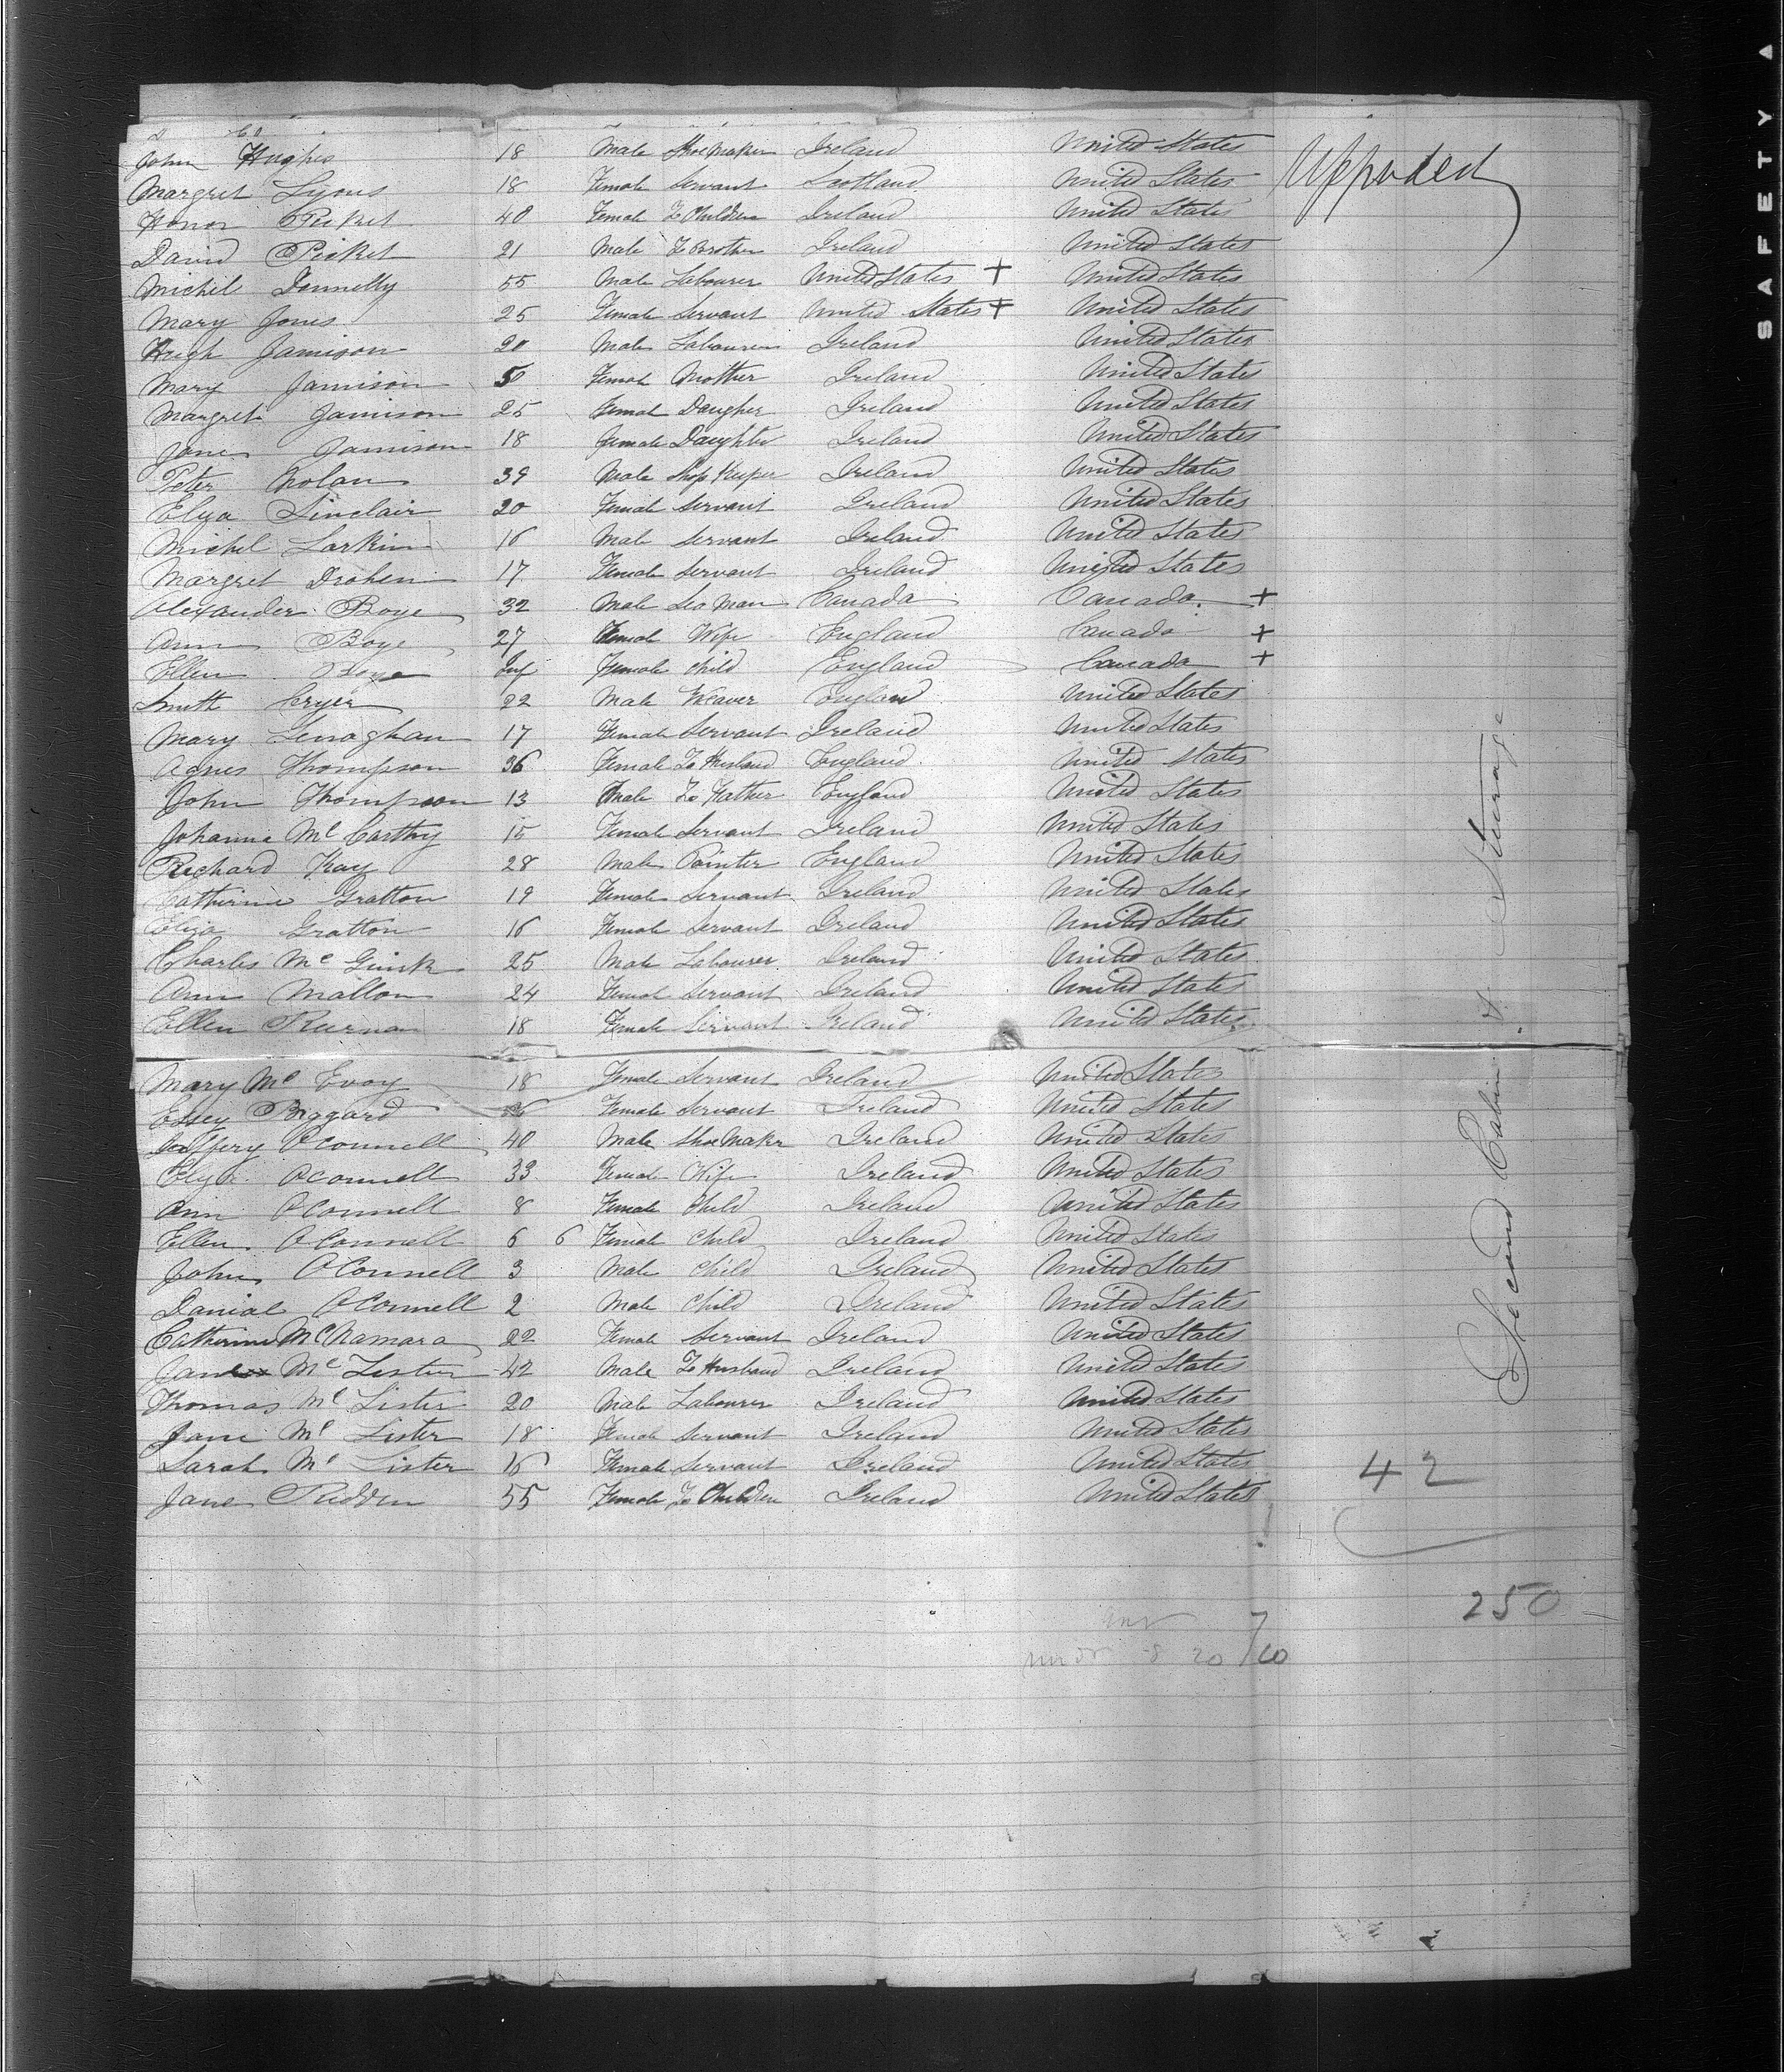 John Hughes 18 Male Shoe Maker Ireland United States
Margret Lyons 18 Female Servant Scotland United States
Honor Picket 40 Female To Children Ireland United States
David Picket 21 Male To Brother Ireland United States
Michil Donnelly 55 Male Labourer United States + United States
Mary Jones 25 Female Servant United States + United States
Hugh Jamison 20 Male Labourer Ireland United States
Mary Jamison 50 Female Mother Ireland United States
Margret Jamison 25 Female Daugher Ireland United States
Jane Jamison 18 Female Daughter Ireland United States
Peter Nolan 39 Male Shop Keeper Ireland United States
Elza Sinclair 20 Female Servant Ireland United States
Michel Larkin 16 Male Servant Ireland United States
Margret Drohen 17 Female Servant Ireland United States
Alexander Boye 32 Male Sea Man Canada Canada +
Ann Boye 27 Female Wife England Canada +
Ellen Boye Inf Female Child England Canada +
Smith Cryer 22 Male Weaver England United States
Mary Lenaghan 17 Female Servant Ireland United States
Agnes Thompson 36 Female To Husband England United States
John Thompson 13 Male To Father England United States
Johanna Mc Carthy 15 Female Servant Ireland United States
Richard Kay 28 Male Painter England United States
Catherine Gratton 19 Female Servant Ireland United States
Eliza Gratton 16 Female Servant Ireland United States
Charles Mc Gurk 25 Male Labourer Ireland United States
Ann Mallon 24 Female Servant Ireland United States
Ellen 18 Female Servant Ireland United States
Mary Mc Evoy 18 Female Servant Ireland United States
Essey Biggard Female Servant Ireland United States
Jeffery OConnell 40 Male Shoe Maker Ireland United States
Elza OConnell 33 Female Wife Ireland United States
Ann OConnell 8 Female Child Ireland United States
Ellen OConnell 6 6 Female Child Ireland United States
John OConnell 3 Male Child Ireland United States
Danial OConnell 2 Male Child Ireland United States
Catherine McNamara 22 Female Servant Ireland United States
Mc Lister 42 Male To Husband Ireland United States
Thomas Mc Lister 20 Male Labourer Ireland United States
Jane Mc Lister 18 Female Servant Ireland United States
Sarah Mc Lister 16 Female Servant Ireland United States
Jane Ridden 55 Female To Children Ireland United States
42
250
Second Cabin & Steerage
SAFETY A